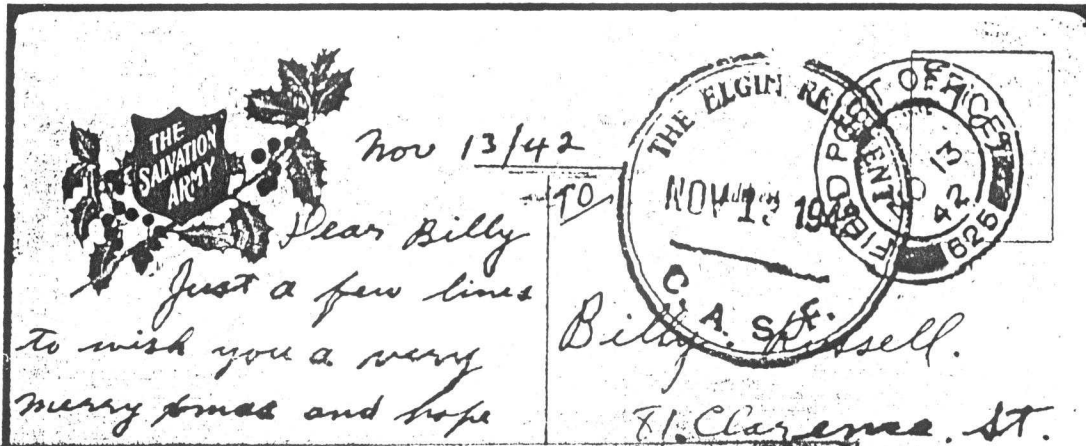 THE
SALVATION
ARMY
Nov 13/42
Dear Billy
Just a few lines
to wish you a very
merry xmas and hope
TO
THE ELGIN RE
NOV 13 1942
C. A. S. F.
FIELD POST OFFICE
13
42
625
Billy Russell.
71. Clarence. St.